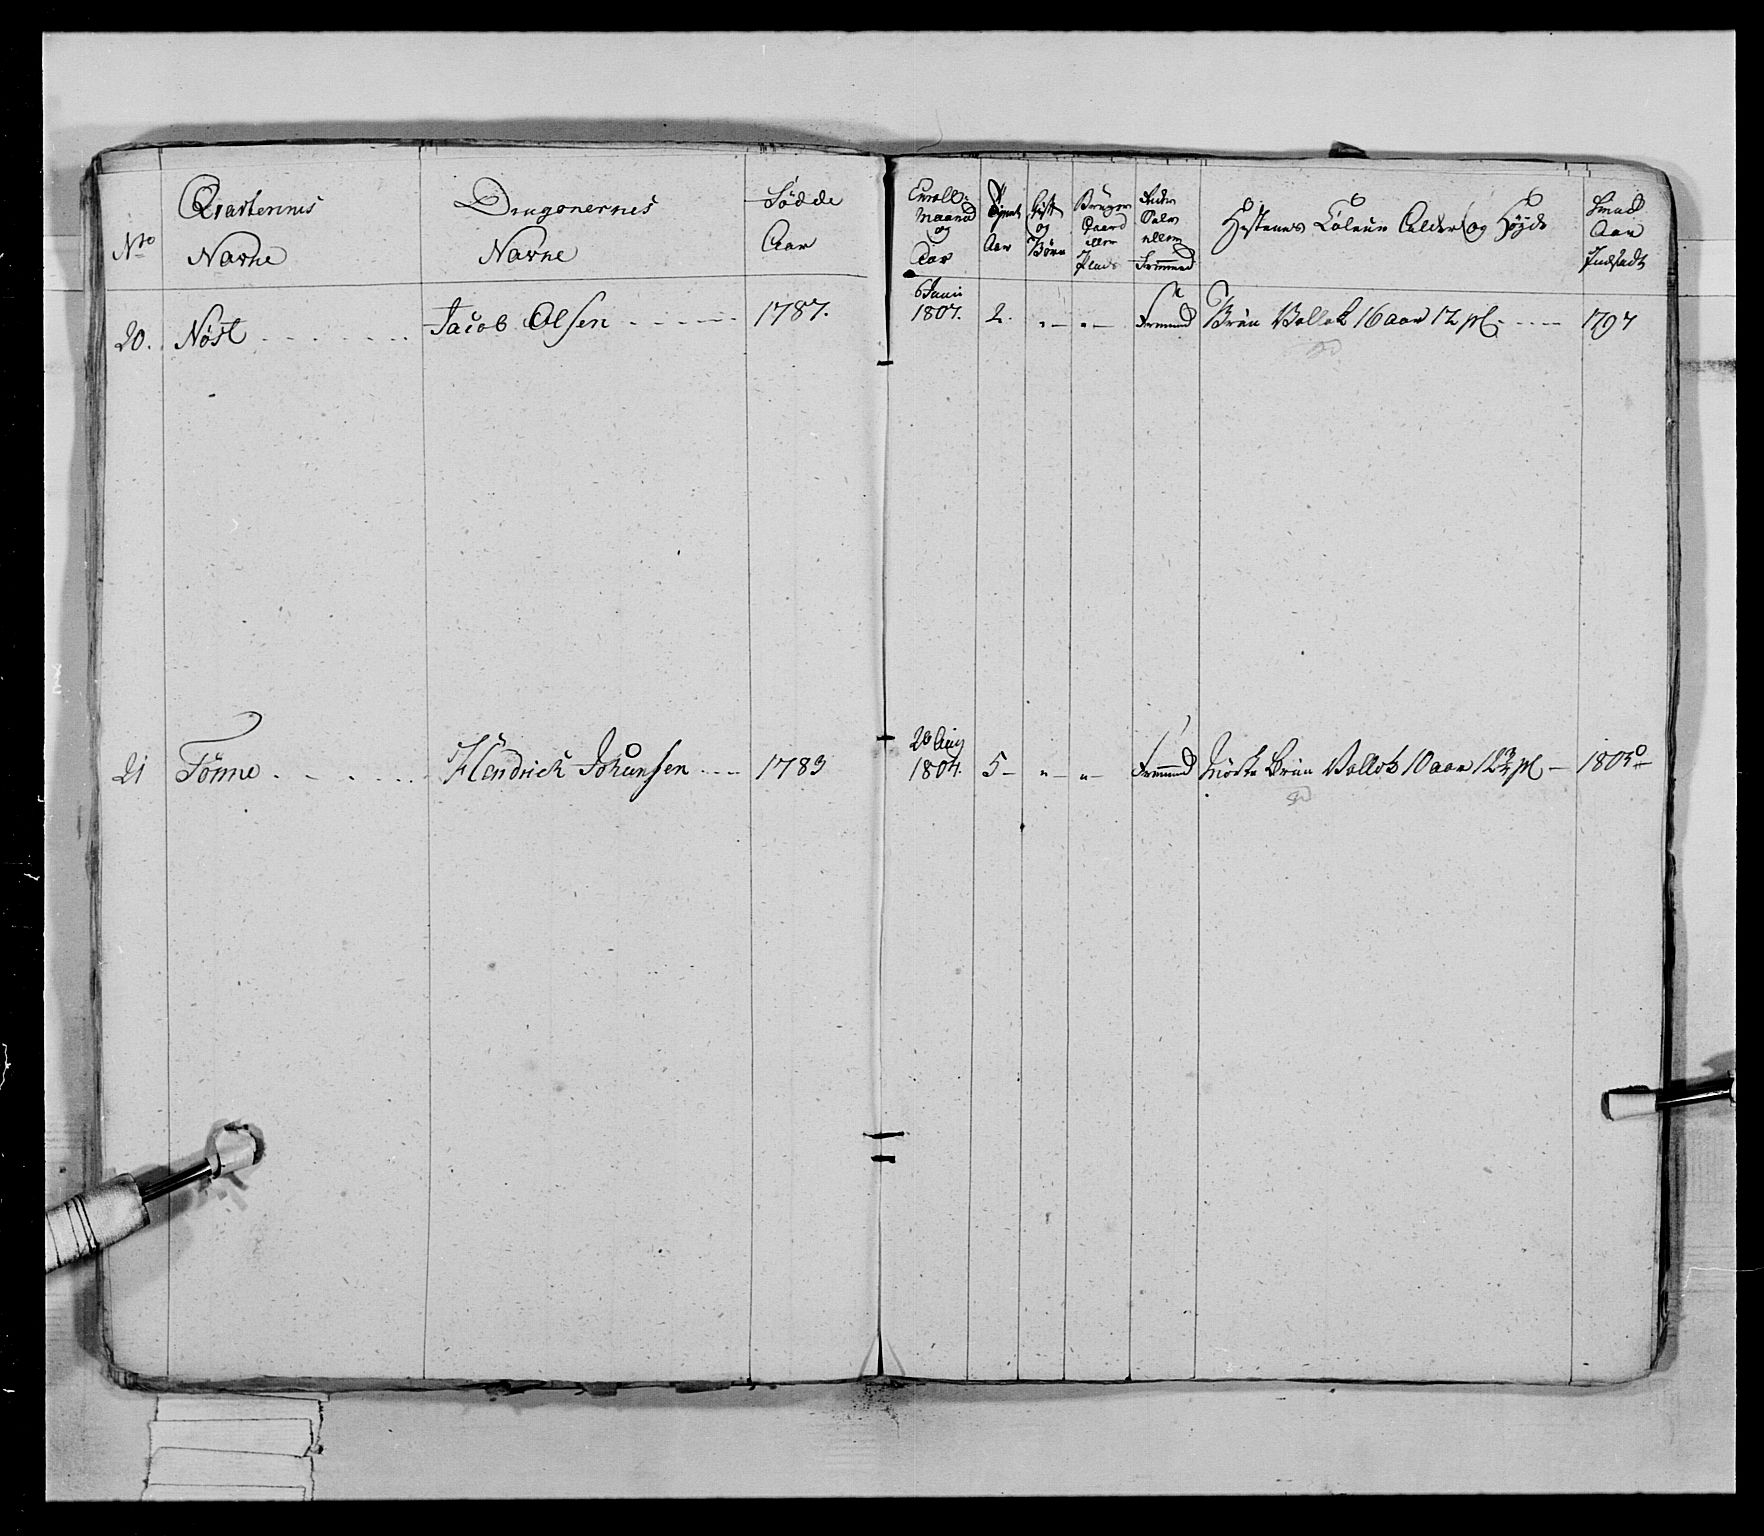 No Qvarterernes Navne
Dragonernes Navne
Fødde Aar
Enroll: Maaned og Aar
Tient Aar
Gift og Børn
Bruger Gaard eller Plads
Inden Sals eller Fremmed
Hestenes Coleur Alder og Høyde
Hvad Aar Indsadt
20. Nøst Jacob Olsen 1787. 6 Junii 1807. 2. " — " — Fremmed Brun Vallak 16 aar 12 pl. 1797
21 Tønne Hendrich Johansen 1783 28 Aug 1804. 5 — " — " — Fremmed Mørke Brun Vallak 10 aar 12 pl — 180